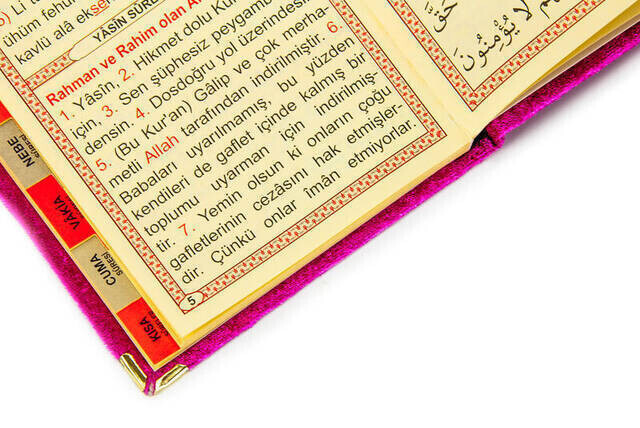 5) Lİ t
ühüm fehü
kavlü alâ ekser
YÂSÎN SÛR
Rahman ve Rahim olan Al
1. Yâsîn. 2. Hikmet dolu Kur
için, 3. Sen şüphesiz peygam
densin. 4. Dosdoğru yol üzerindesi
5. (Bu Kur'an) Gâlip ve çok merha-
metli Allah tarafından indirilmiştir. 6.
Babaları uyarılmamış, bu yüzden
kendileri de gaflet içinde kalmış bir
toplumu uyarman için indirilmiş-
tir. 7. Yemin olsun ki onların çoğu
gafletlerinin cezasını hak etmişler-
dir. Çünkü onlar îmân etmiyorlar.
5
NEBE
SÛRESİ
VÂKIA
CUMA
SÛRESİ
KISA
SÛRELER
حَقَّ
لَا يُؤْمِنُونَ